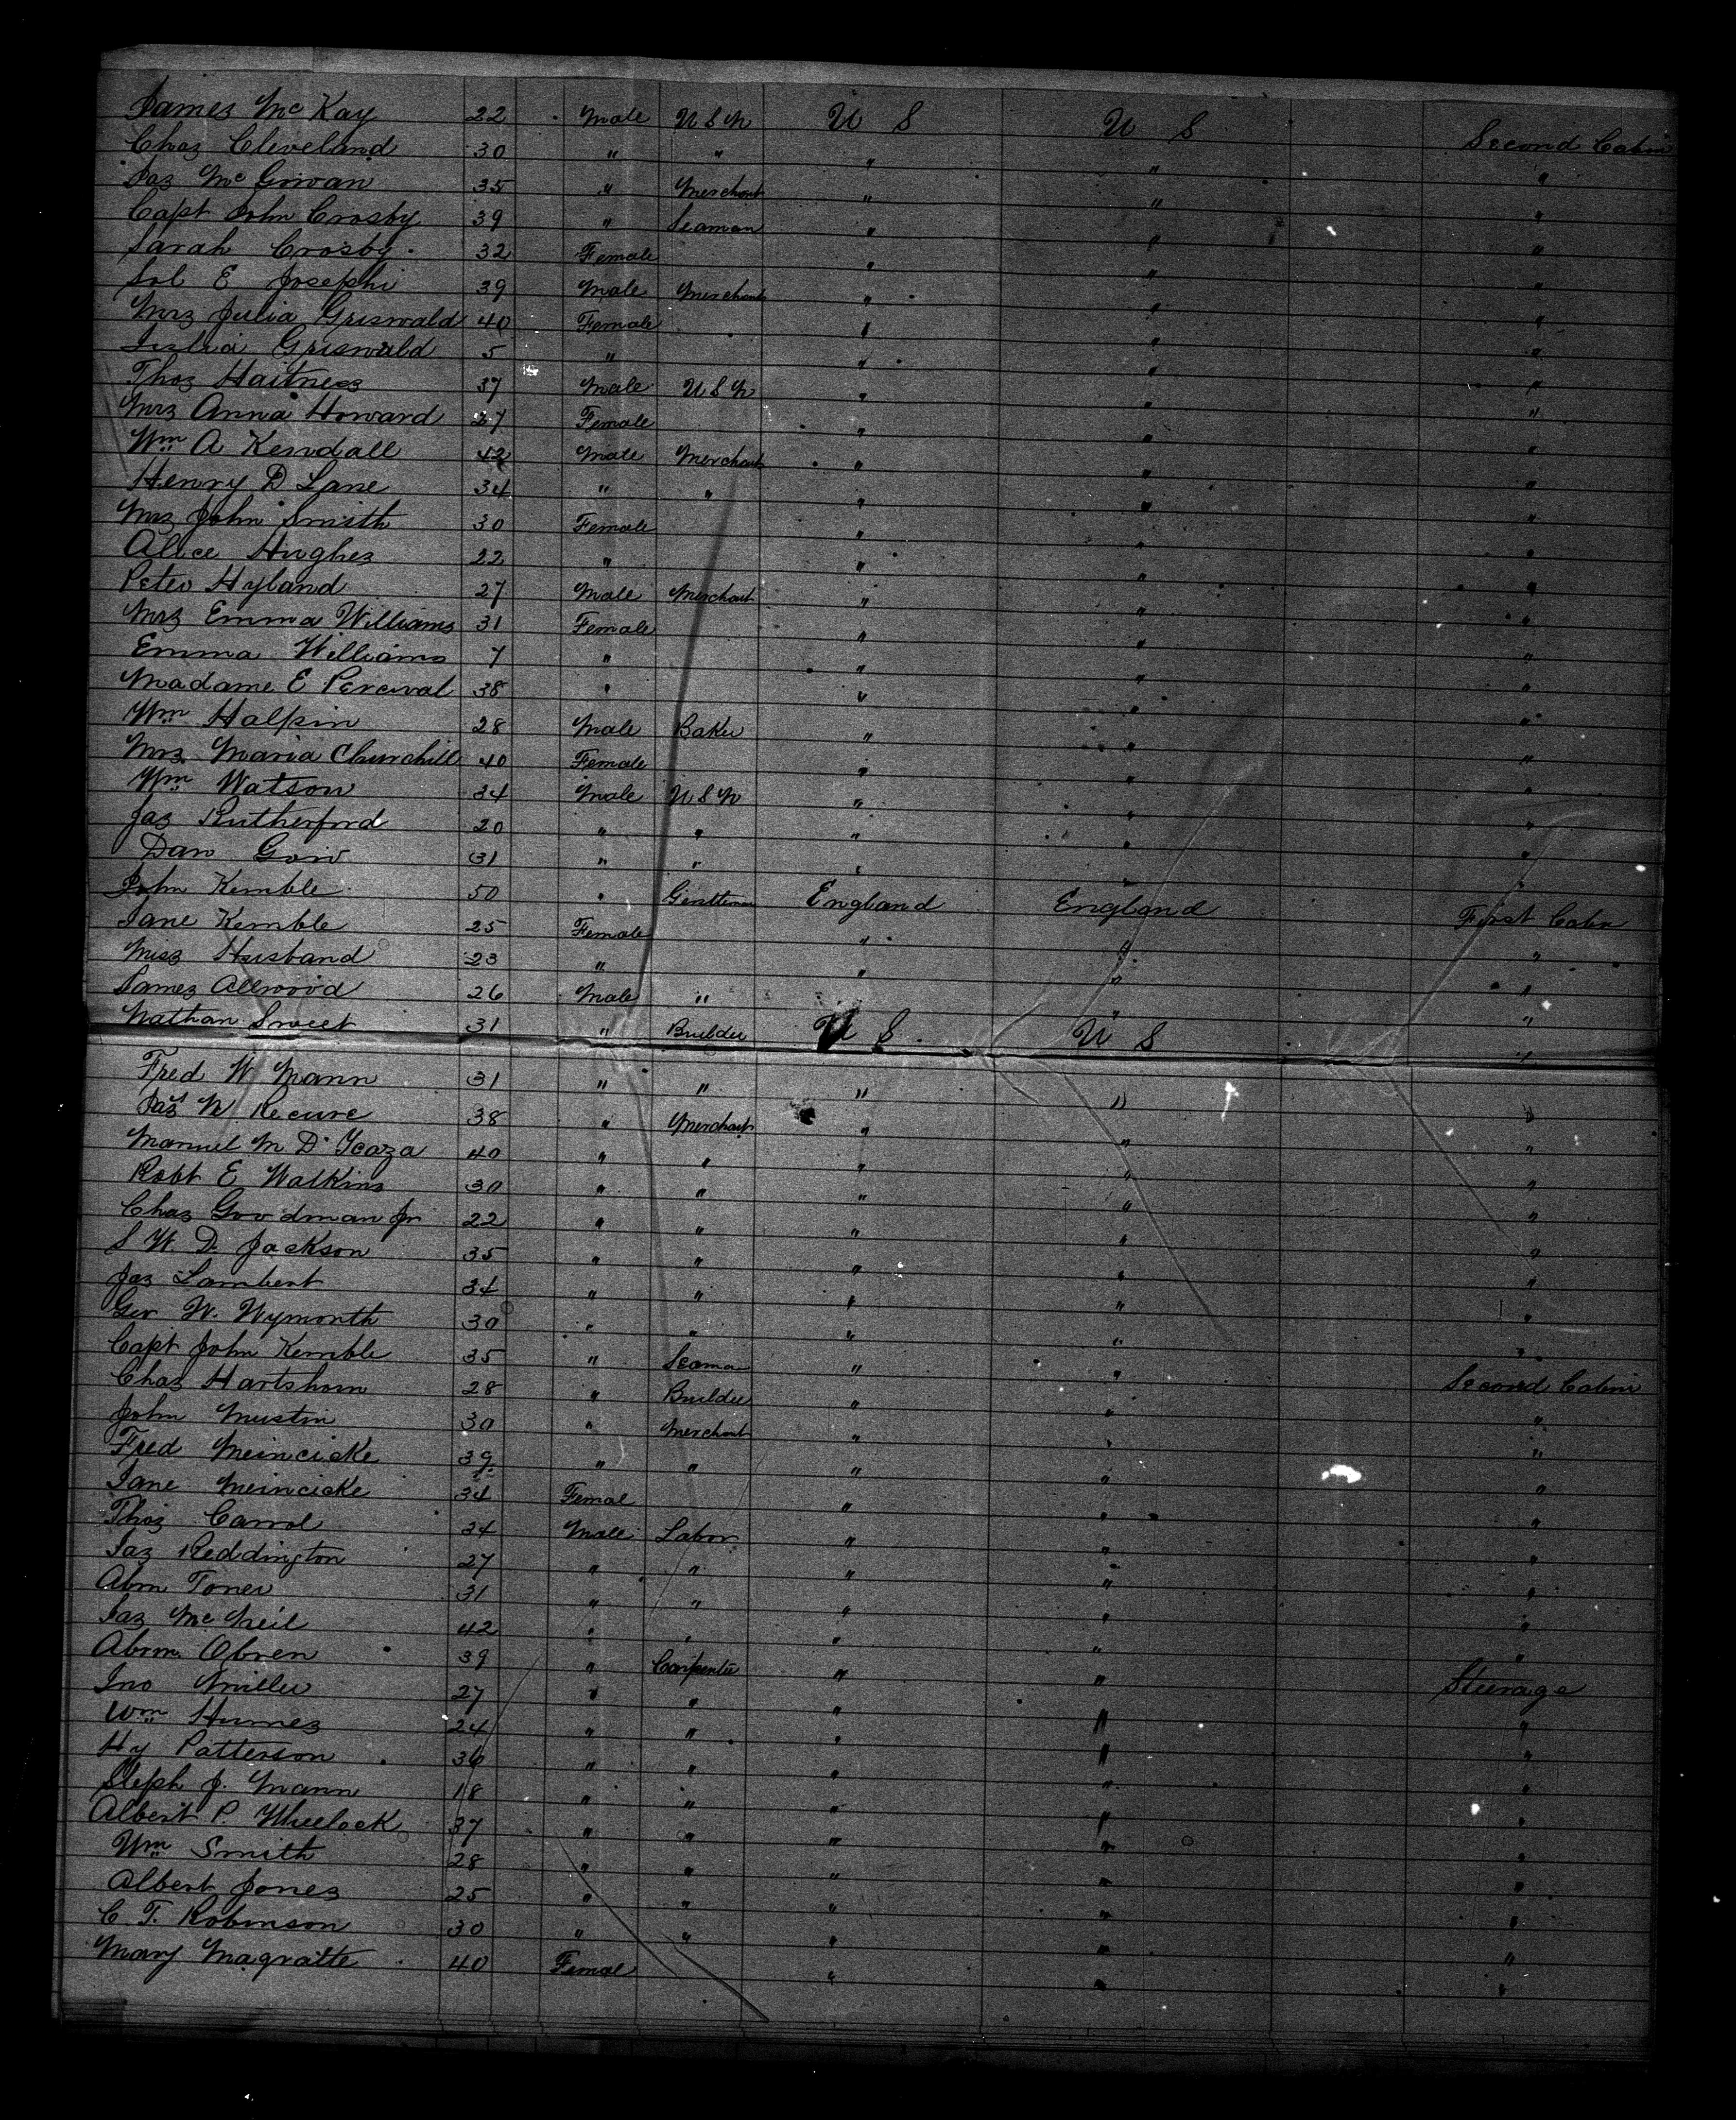 James McKay 22 Male U S N U S U S Second Cabin
Chas Cleveland 30 " " " " "
Jas McGowan 35 " Merchant " " "
Capt John Crosby 39 " Seaman " " "
Sarah Crosby 32 Female " " "
Sol E Josephi 39 Male Merchant " " "
Mrs Julia Griswald 40 Female " " "
Griswald 5 " " " "
Thos Haitness 37 Male U S N " " "
Mrs Anna Howard 27 Female " " "
Wm A Kendall 42 Male Merchant " " "
Henry D Lane 34 " " " " "
Mrs John Smith 30 Female " " "
Alice Hughes 22 " " " "
Peter Hyland 27 Male Merchant " " "
Mrs Emma Williams 31 Female " " "
Emma Williams 7 " " " "
Madame E Percival 38 " " " "
Wm Halpin 28 Male Baker " " "
Mrs Maria Churchill 40 Female " " "
Wm Watson 34 Male U S N " " "
Jas Rutherford 20 " " " " "
Dan 31 " " " " "
John Kemble 50 " Gentleman England England First Cabin
Jane Kemble 25 Female " " "
Miss Husband 23 " " " "
James Allwood 26 Male " " " "
Nathan Sweet 31 " Builder U S U S "
Fred W Mann 31 " " " " "
Jas W Recure 38 " Merchant " " "
Manuel M D'Icaza 40 " " " " "
Robt E Watkins 30 " " " " "
Chas Goodman Jr 22 " " " " "
S W. D. Jackson 35 " " " " "
Jas Lambert 34 " " " " "
Geo W. Wymonth 30 " " " " "
Capt John Kemble 35 " Seaman " " "
Chas Hartshorn 28 " Builder " " Second Cabin
John Mustin 30 " Merchant " " "
Fred Meincicke 39 " " " " "
Jane Meincicke 34 Femal " " "
Thos Carrol 34 Male Labor " " "
Jas Reddington 27 " " " " "
Abm Toner 31 " " " " "
Jas McNeil 42 " " " " "
Abrm Obren 39 " Carpenter " " "
Jno Miller 27 " " " " Steerage
Wm Humes 24 " " " " "
Hy Patterson 36 " " " " "
Steph J. Mann 18 " " " " "
Albert P. Wheelock 37 " " " " "
Wm Smith 28 " " " " "
Albert Jones 25 " " " " "
C T. Robinson 30 " " " " "
Mary Magratte 40 Femal " " "